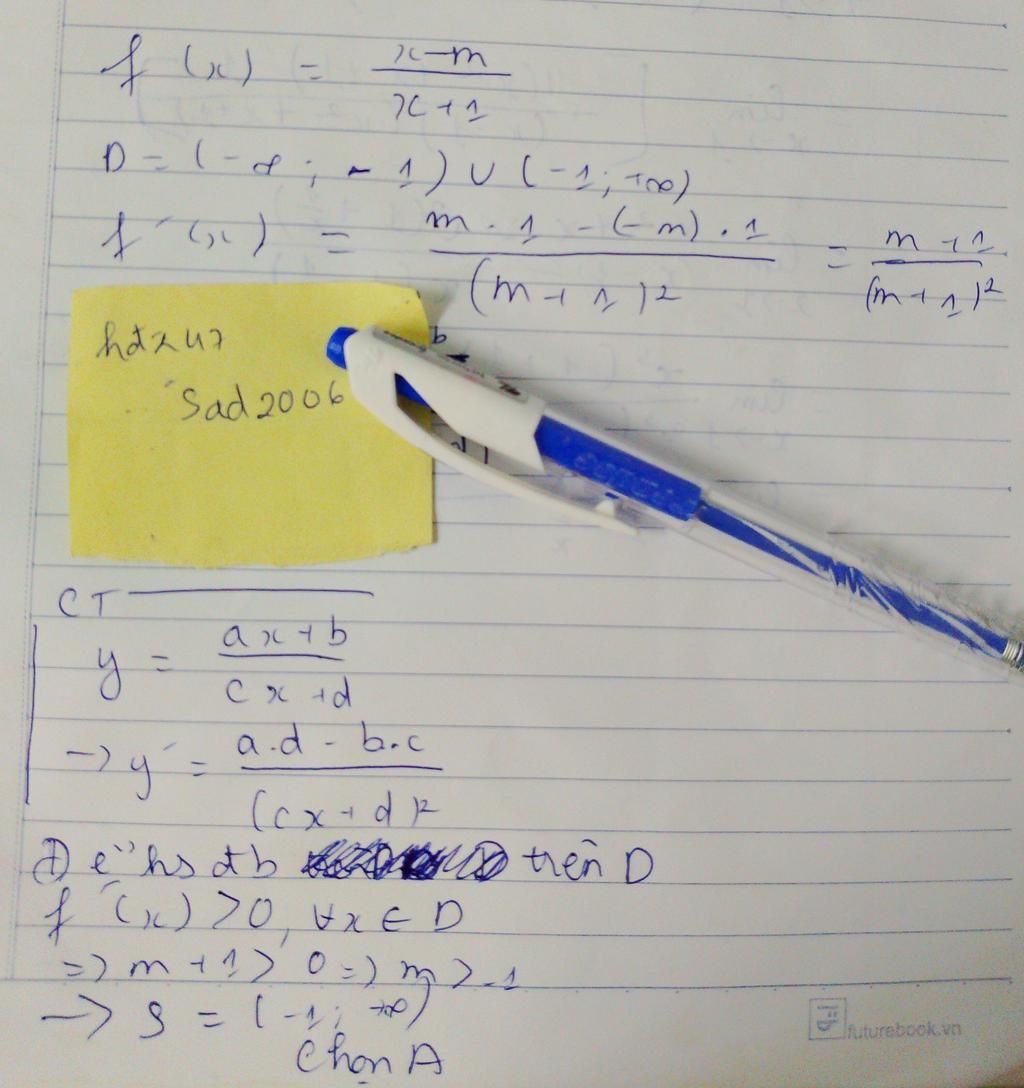 f (x) = x-m / x+1
D = (-∞; -1) ∪ (-1; +∞)
f'(x) = m.1 - (-m).1 / (m+1)² = m+1 / (m+1)²
hdz47
Sad2006
CT
y = ax+b / cx+d
-> y' = a.d - b.c / (cx+d)²
Để hs đb trên D
f'(x) >0, ∀x ∈ D
=> m+1> 0 => m>-1
-> S = (-1; +∞)
Chọn A
futurebook.vn